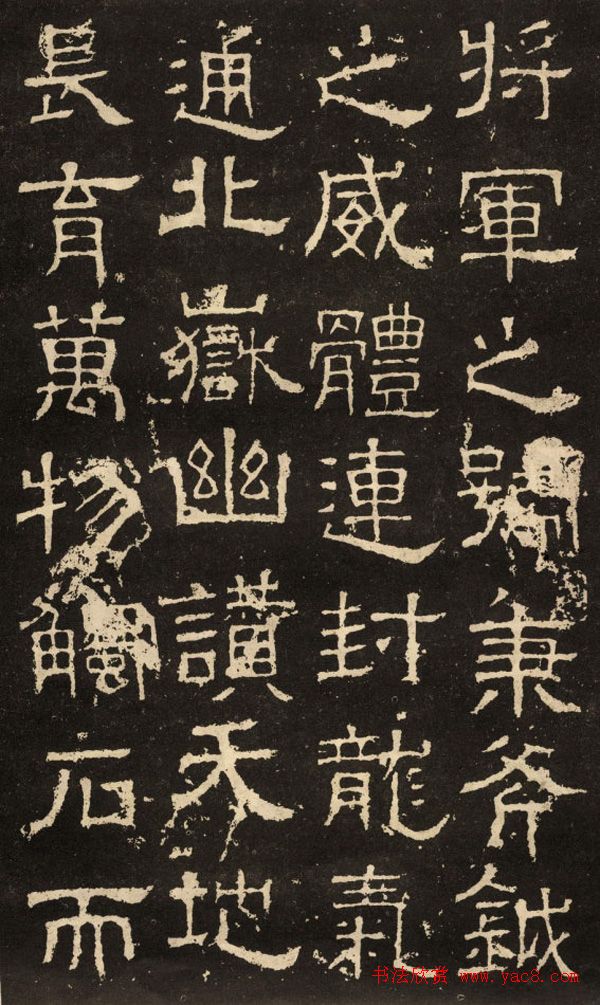 將軍之號秉斧鉞
之威體連封龍氣
通北嶽幽讚天地
長育萬物觸石而
书法欣赏 www.yac8.com